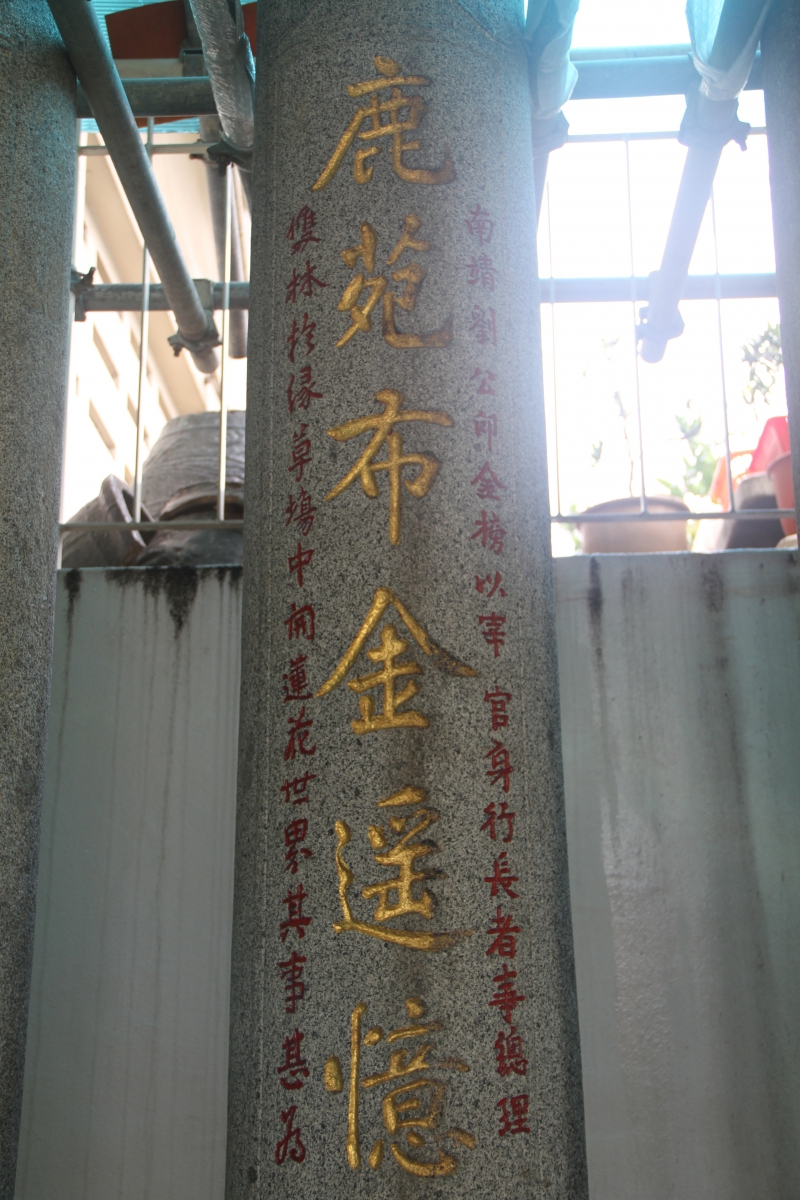 南靖劉公即金榜以宰官身行長者事總理
鹿苑布金遥憶
雙林於綠草塲中開蓮花世界其事甚為